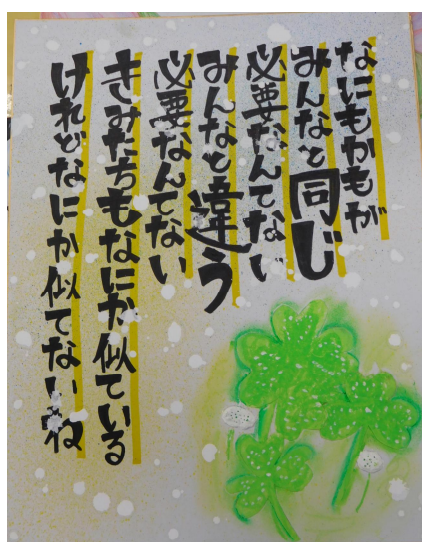 なにもかもが
みんなと同じ
必要なんてない
みんなと違う
必要なんてない
きみたちもなにか似ている
けれどなにか似てないね